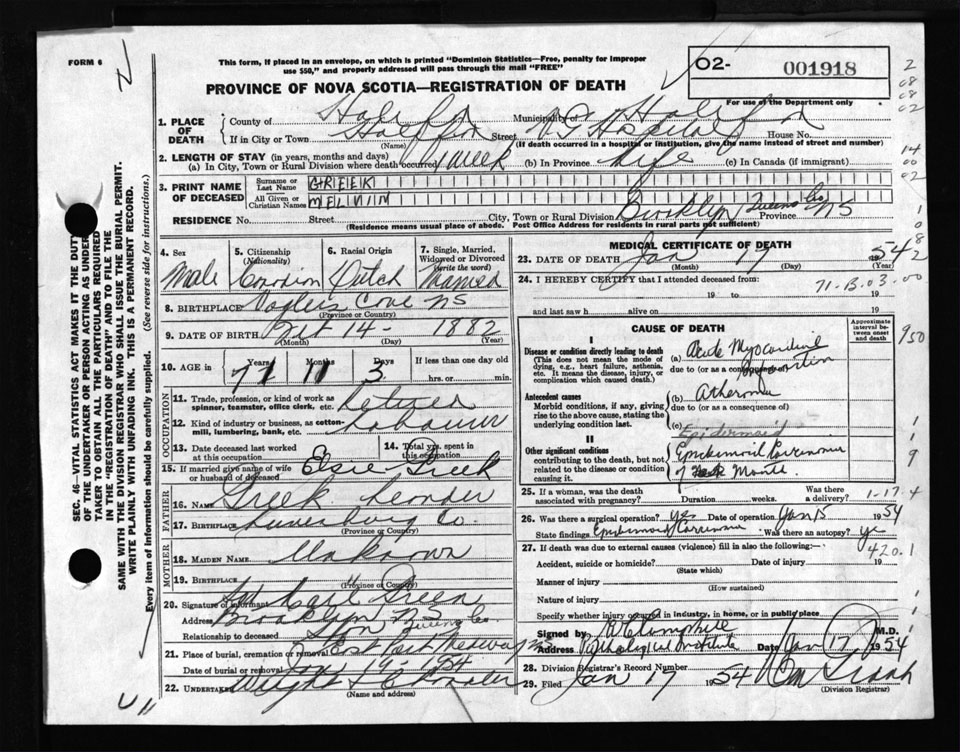 FORM 6
This form, if placed in an envelope, on which is printed "Dominion Statistics—Free, penalty for improper
use $50," and properly addressed will pass through the mail "FREE"
O2- 001918
For use of the Department only
PROVINCE OF NOVA SCOTIA—REGISTRATION OF DEATH
1. PLACE OF DEATH
County of Halifax Municipality of Halifax
If in City or Town Halifax Street V G Hospital House No.
(Name) (If death occurred in a hospital or institution, give the name instead of street and number)
2. LENGTH OF STAY (in years, months and days)
(a) In City, Town or Rural Division where death occurred 1 week (b) In Province Life (c) In Canada (if immigrant)
3. PRINT NAME OF DECEASED
Surname or Last Name GREEK
All Given or Christian Names MELVIN
RESIDENCE No. Street City, Town or Rural Division Brooklyn Queens Co Province NS
(Residence means usual place of abode. Post Office Address for residents in rural parts not sufficient)
4. Sex Male
5. Citizenship (Nationality) Canadian
6. Racial Origin Dutch
7. Single, Married, Widowed or Divorced (write the word) Married
8. BIRTHPLACE Voglers Cove NS
(Province or Country)
9. DATE OF BIRTH 14- 1882
(Month) (Day) (Year)
10. AGE in Years Months Days If less than one day old
71 11 3 hrs. or min.
OCCUPATION
11. Trade, profession, or kind of work as spinner, teamster, office clerk, etc. Retired
12. Kind of industry or business, as cotton-mill, lumbering, bank, etc. Labourer
13. Date deceased last worked at this occupation
14. Total yrs. spent in this occupation
15. If married give name of wife or husband of deceased Elsie Greek
FATHER
16. NAME Greek Leander
17. BIRTHPLACE Lunenburg Co.
(Province or Country)
MOTHER
18. MAIDEN NAME Unknown
19. BIRTHPLACE
(Province or Country)
20. Signature of informant Carl Greek
Address Brooklyn NS Queens Co.
Relationship to deceased Son
21. Place of burial, cremation or removal East Port Medway
Date of burial or removal Jan 19 1954
22. Undertaker Wright
(Name and address)
MEDICAL CERTIFICATE OF DEATH
23. DATE OF DEATH Jan 17 1954
(Month) (Day) (Year)
24. I HEREBY CERTIFY that I attended deceased from
71-13-03-00
19 to 19
and last saw h alive on 19
CAUSE OF DEATH
Approximate interval between onset and death
I
Disease or condition directly leading to death
(This does not mean the mode of dying, e.g., heart failure, asthenia, etc. It means the disease, injury, or complication which caused death.
(a) Acute Myocardial Infarction
due to (or as a consequence of)
Antecedent causes
Morbid conditions, if any, giving rise to the above cause, stating the underlying condition last.
(b) Atheroma
due to (or as a consequence of)
(c) Epidermoid
II
Other significant conditions
contributing to the death, but not related to the disease or condition causing it.
Epidermoid Carcinoma
of Mouth.
25. If a woman, was the death associated with pregnancy? Duration weeks. Was there a delivery?
1-17 4
26. Was there a surgical operation? yes Date of operation Jan 15 1954
State findings Epidermoid Carcinoma Was there an autopsy? ye
420.1
27. If death was due to external causes (violence) fill in also the following:
Accident, suicide or homicide? Date of injury 19
(State which)
Manner of injury
(How sustained)
Nature of injury
Specify whether injury occurred in industry, in home, or in public place
Signed by M.D.
Address Pathological Institute Date Jan 17, 1954
28. Division Registrar's Record Number
29. Filed Jan 19 1954
(Division Registrar)
SEC. 46—VITAL STATISTICS ACT MAKES IT THE DUTY
OF THE UNDERTAKER OR PERSON ACTING AS UNDER-
TAKER TO OBTAIN ALL THE PARTICULARS REQUIRED
IN THE "REGISTRATION OF DEATH" AND TO FILE THE
SAME WITH THE DIVISION REGISTRAR WHO SHALL ISSUE THE BURIAL PERMIT.
WRITE PLAINLY WITH UNFADING INK. THIS IS A PERMANENT RECORD.
Every item of information should be carefully supplied. (See reverse side for instructions.)
950